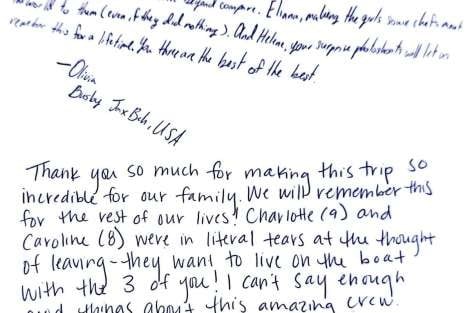 world to them (even if they did nothing). And Helene, your surprise photoshoots will let us
remember this for a lifetime. You three are the best of the best.
—Olivia
Busby Jax Bch, USA
Thank you so much for making this trip so
incredible for our family. We will remember this
for the rest of our lives! Charlotte (9) and
Caroline (8) were in literal tears at the thought
of leaving - they want to live on the boat
with the 3 of you! I can't say enough
good things about this amazing crew.